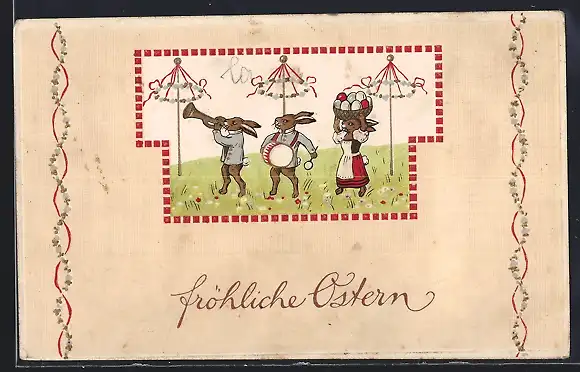 fröhliche Ostern